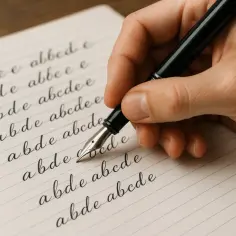 e abbcde e
e abbc e e
e abcde e
abde abcde
abde abcde
abde abcde
abde abcde
abde abcde
abde abcde